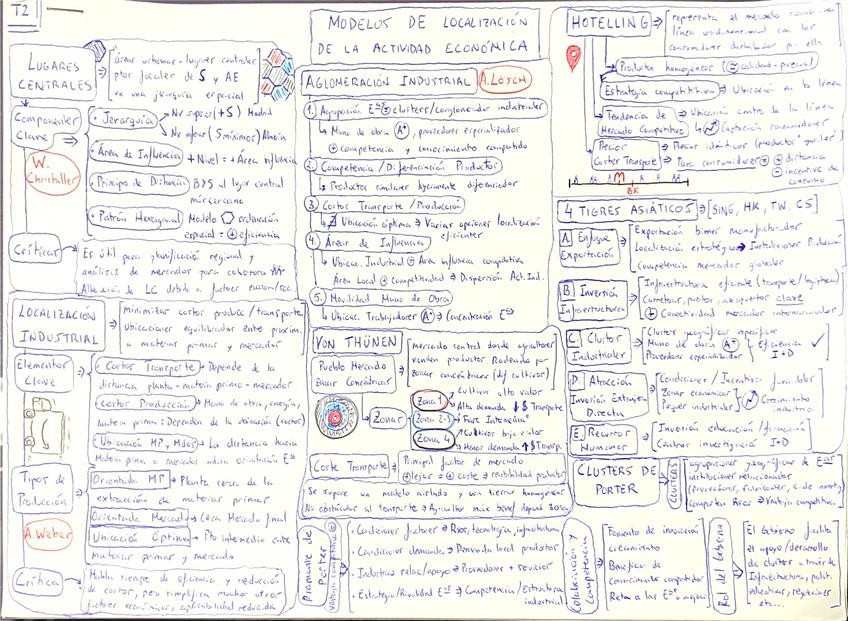 T2
MODELOS DE LOCALIZACIÓN
DE LA ACTIVIDAD ECONÓMICA
LUGARES
CENTRALES
áreas urbanas - lugares centrales
ptos focales de S y AE
en una jerarquía espacial
Componentes
Clave
W.
Christaller
Jerarquía
Nv superior (+S) Madrid
Nv inferior (S mínimos) Almería
Área de Influencia + Nivel = + Área influencia
Principio de Distancia BYS al lugar central
más cercano
Patrón Hexagonal Modelo ordenación
espacial = eficiencia
Críticas
Es útil para planificación regional y
análisis de mercados para cobertura
Alteración de LC debido a factores econom/soc.
LOCALIZACIÓN
INDUSTRIAL
Minimizar costos produc / transporte
Ubicaciones equilibradas entre proxim.
a materias primas y mercados
Elementos
Clave
Costos Transporte → Depende de la
distancia planta - materia prima - mercados
Costos Producción → Mano de obra, energía,
materia prima: Dependen de la ubicación (costos)
Ubicación MP, Mdos → La distancia hacia
Materia prima o mercados indica orientación
Tipos de
Producción
A. Weber
Orientada MP → Planta cerca de la
extracción de materias primas
Orientada Mercado → Cerca Mercado final
Ubicación Óptima → Pto intermedio entre
materias primas y mercado
Crítica
Habla siempre de eficiencia y reducción
de costos, pero simplifica muchos otros
factores económicos, aplicabilidad reducida
AGLOMERACIÓN INDUSTRIAL A. LÖSCH
1. Agrupación = clusters/conglomerados industriales
Mano de obra A+, proveedores especializados
+ competencia y conocimiento compartido
2. Competencia / Diferenciación Productos
Productos similares ligeramente diferenciados
3. Costos Transporte / Producción
Ubicación óptima → Varias opciones localización
eficientes
4. Áreas de Influencia
Ubicac. Industrial = Área influencia competitiva
Área Local + competitividad → Dispersión Act. Ind.
5. Movilidad Mano de Obra
Ubicac. Trabajadores A+ → Concentración
VON THÜNEN
Pueblo Mercado
Zonas Concéntricas
mercado central donde agricultores
venden productos Rodeado por
zonas concéntricas (dif cultivos)
Zonas
Zona 1
Cultivos alto valor
Alta demanda ↓$ Transporte
Zona 2-3 Fase Intermedia
Zona 4
Cultivos bajo valor
Menor demanda ↑$ Transp.
Coste Transporte
Principal factor de mercado
+ lejos = + coste → rentabilidad productos
Se supone un modelo aislado y con tierras homogéneas
No obstáculos al transporte → Agricultor más benef. después zonas
HOTELLING
representa el mercado como una
línea unidimensional con los
consumidores distribuidos por ella
Productos homogéneos (= calidad-precio)
Estrategia competitiva → Ubicación en la línea
Tendencia de
Mercado Competitivo
Ubicación centro de la línea
Captación consumidores
Precios
Costes Transporte
Precios idénticos (productos "iguales")
Para consumidores + distancia
- incentivo de
consumo
M
BK
4 TIGRES ASIÁTICOS [SING, HK, TW, CS]
A. Enfoque
Exportación
Exportación bienes manufacturados
Localización estratégica → Instalaciones Producción
competencia mercados globales
B. Inversión
Infraestructura
Infraestructura eficiente (transporte / logística)
Carreteras, puertos, aeropuertos clave
+ Conectividad mercados internacionales
C. Cluster
Industriales
Clusters geográficos específicos
Mano de obra A+
Proveedores especializados
Eficiencia ✓
I+D
D. Atracción
Inversión Extranjera
Directa
Condiciones / Incentivos favorables
Zonas económicas
Parques industriales
Crecimiento
industria
E. Recursos
Humanos
Inversión educación / formación
Centros investigación I+D
CLUSTERS DE
PORTER
CLUSTERS
agrupaciones geográficas de
instituciones relacionadas
(Proveedores, fabricantes, C. de invest.)
comparten Áreas → Ventaja competitiva
Diamante de
Porter
Ventaja competitiva
Condiciones factores → Rsos, tecnología, infraestructura
Condiciones demanda → Demanda local productos
Industrias relac/apoyo → Proveedores + servicios
Estrategia/Rivalidad → Competencia / Estructura
industrial
Colaboración y
Competencia
Fomento de innovación
crecimiento
Beneficios de
conocimientos compartidos
Reta a las a mejorar
Rol del Gobierno
El Gobierno facilita
el apoyo/desarrollo
de clusters a través de
Infraestructura, polít.
educativas, regulaciones
etc...